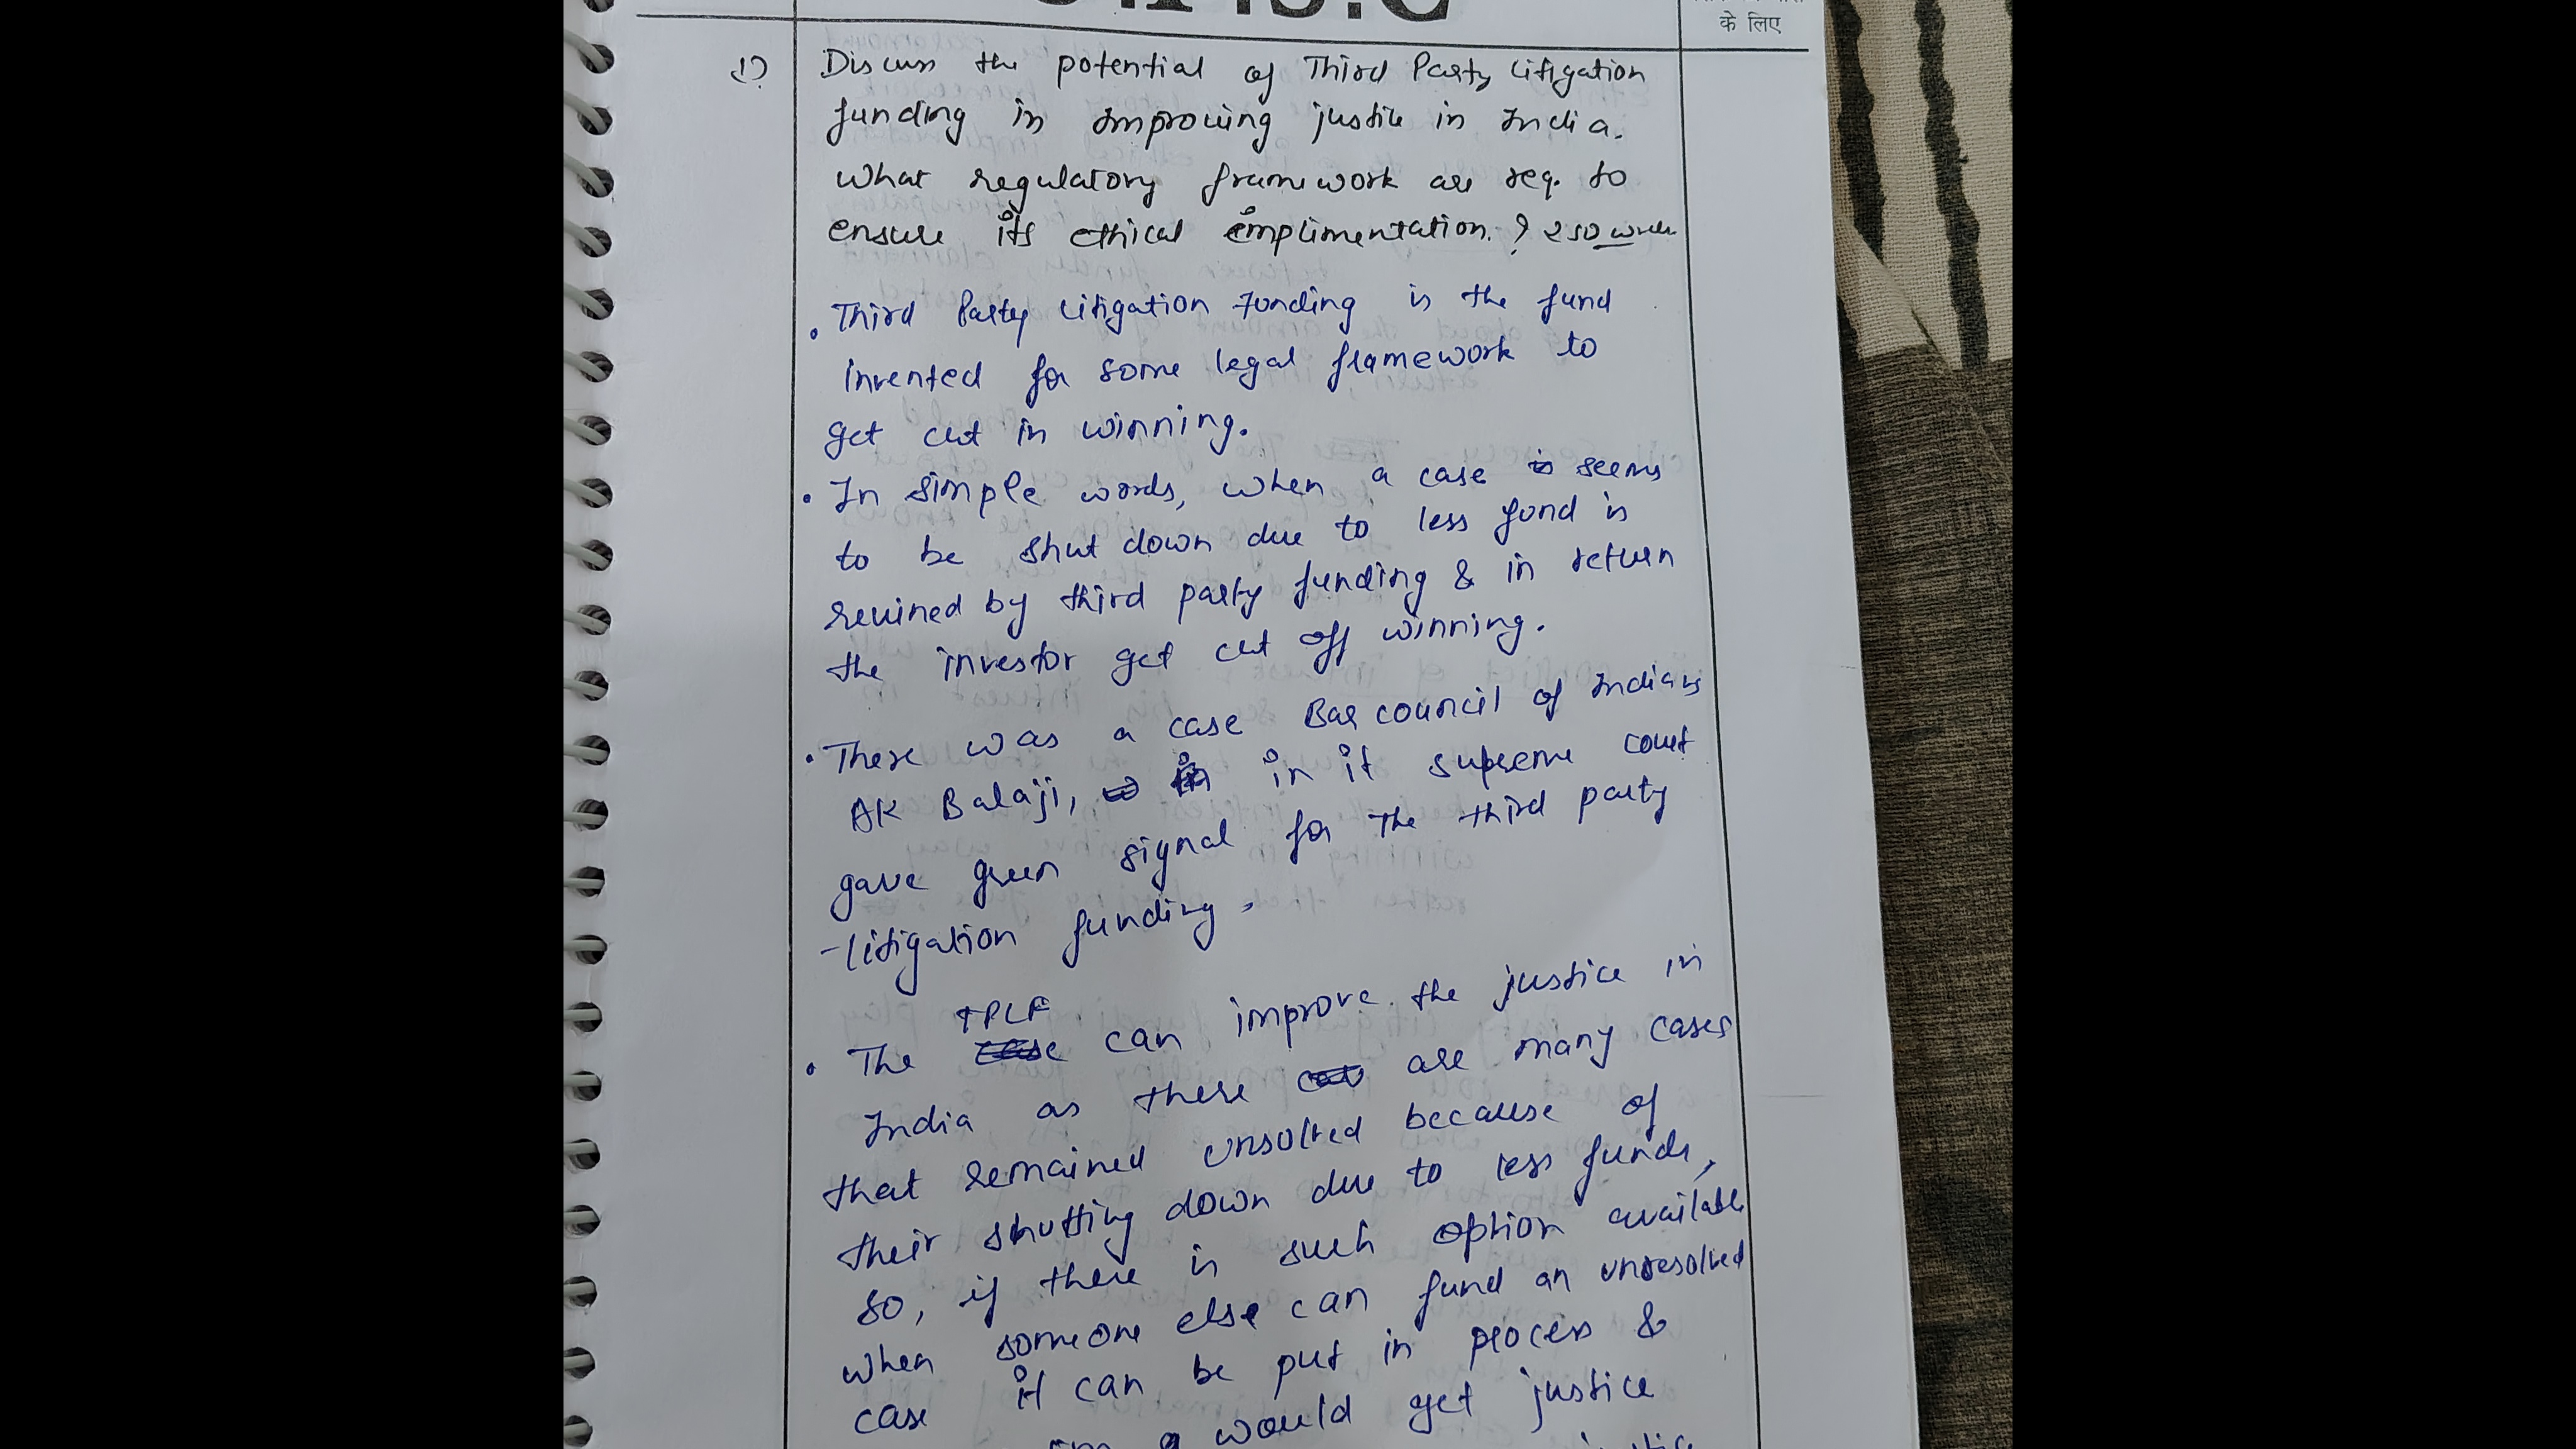 के लिए
1) Discuss the potential of Third Party Litigation
funding in Improving justice in India.
What regulatory framework are req. to
ensure its ethical implimentation. ? 250 words
• Third Party Litigation Funding is the fund
invented for some legal framework to
get cut in winning.
• In simple words, when a case seems
to be shut down due to less fund is
revined by third party funding & in return
the investor get cut off winning.
• There was a case Bar council of India vs
AK Balaji, in it supreme court
gave green signal for the third party
-litigation funding.
• The TPLF can improve the justice in
India as there are many cases
that remained unsolved because of
their shutting down due to less funds,
so, if there is such option available
when someone else can fund an unresolved
case it can be put in process &
would get justice